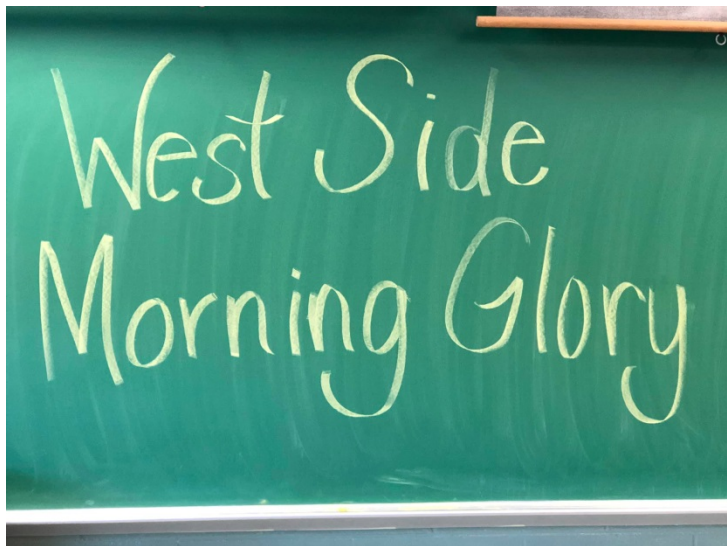 West Side
Morning Glory